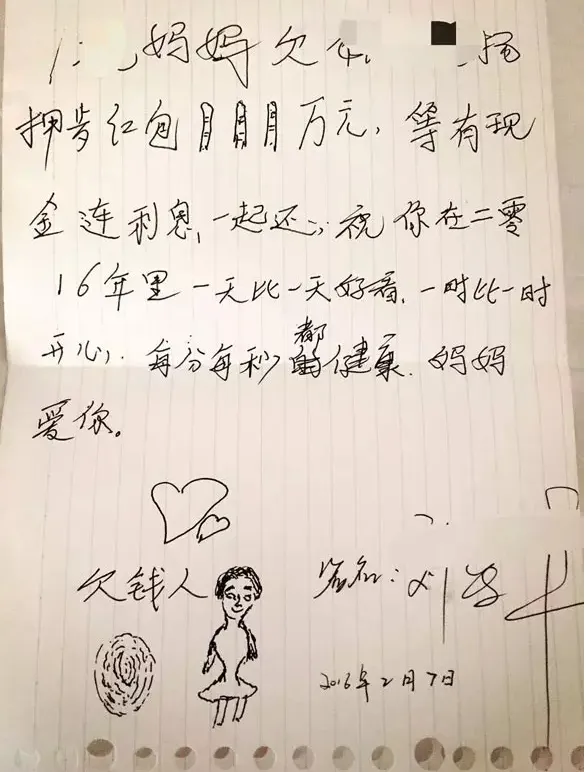 妈妈欠
押岁红包万元，等有现
金连利息，一起还；祝你在二零
16年里一天比一天好看，一时比一时
开心，每分每秒都健康，妈妈
爱你。
欠钱人
签名：刘
2016年2月7日